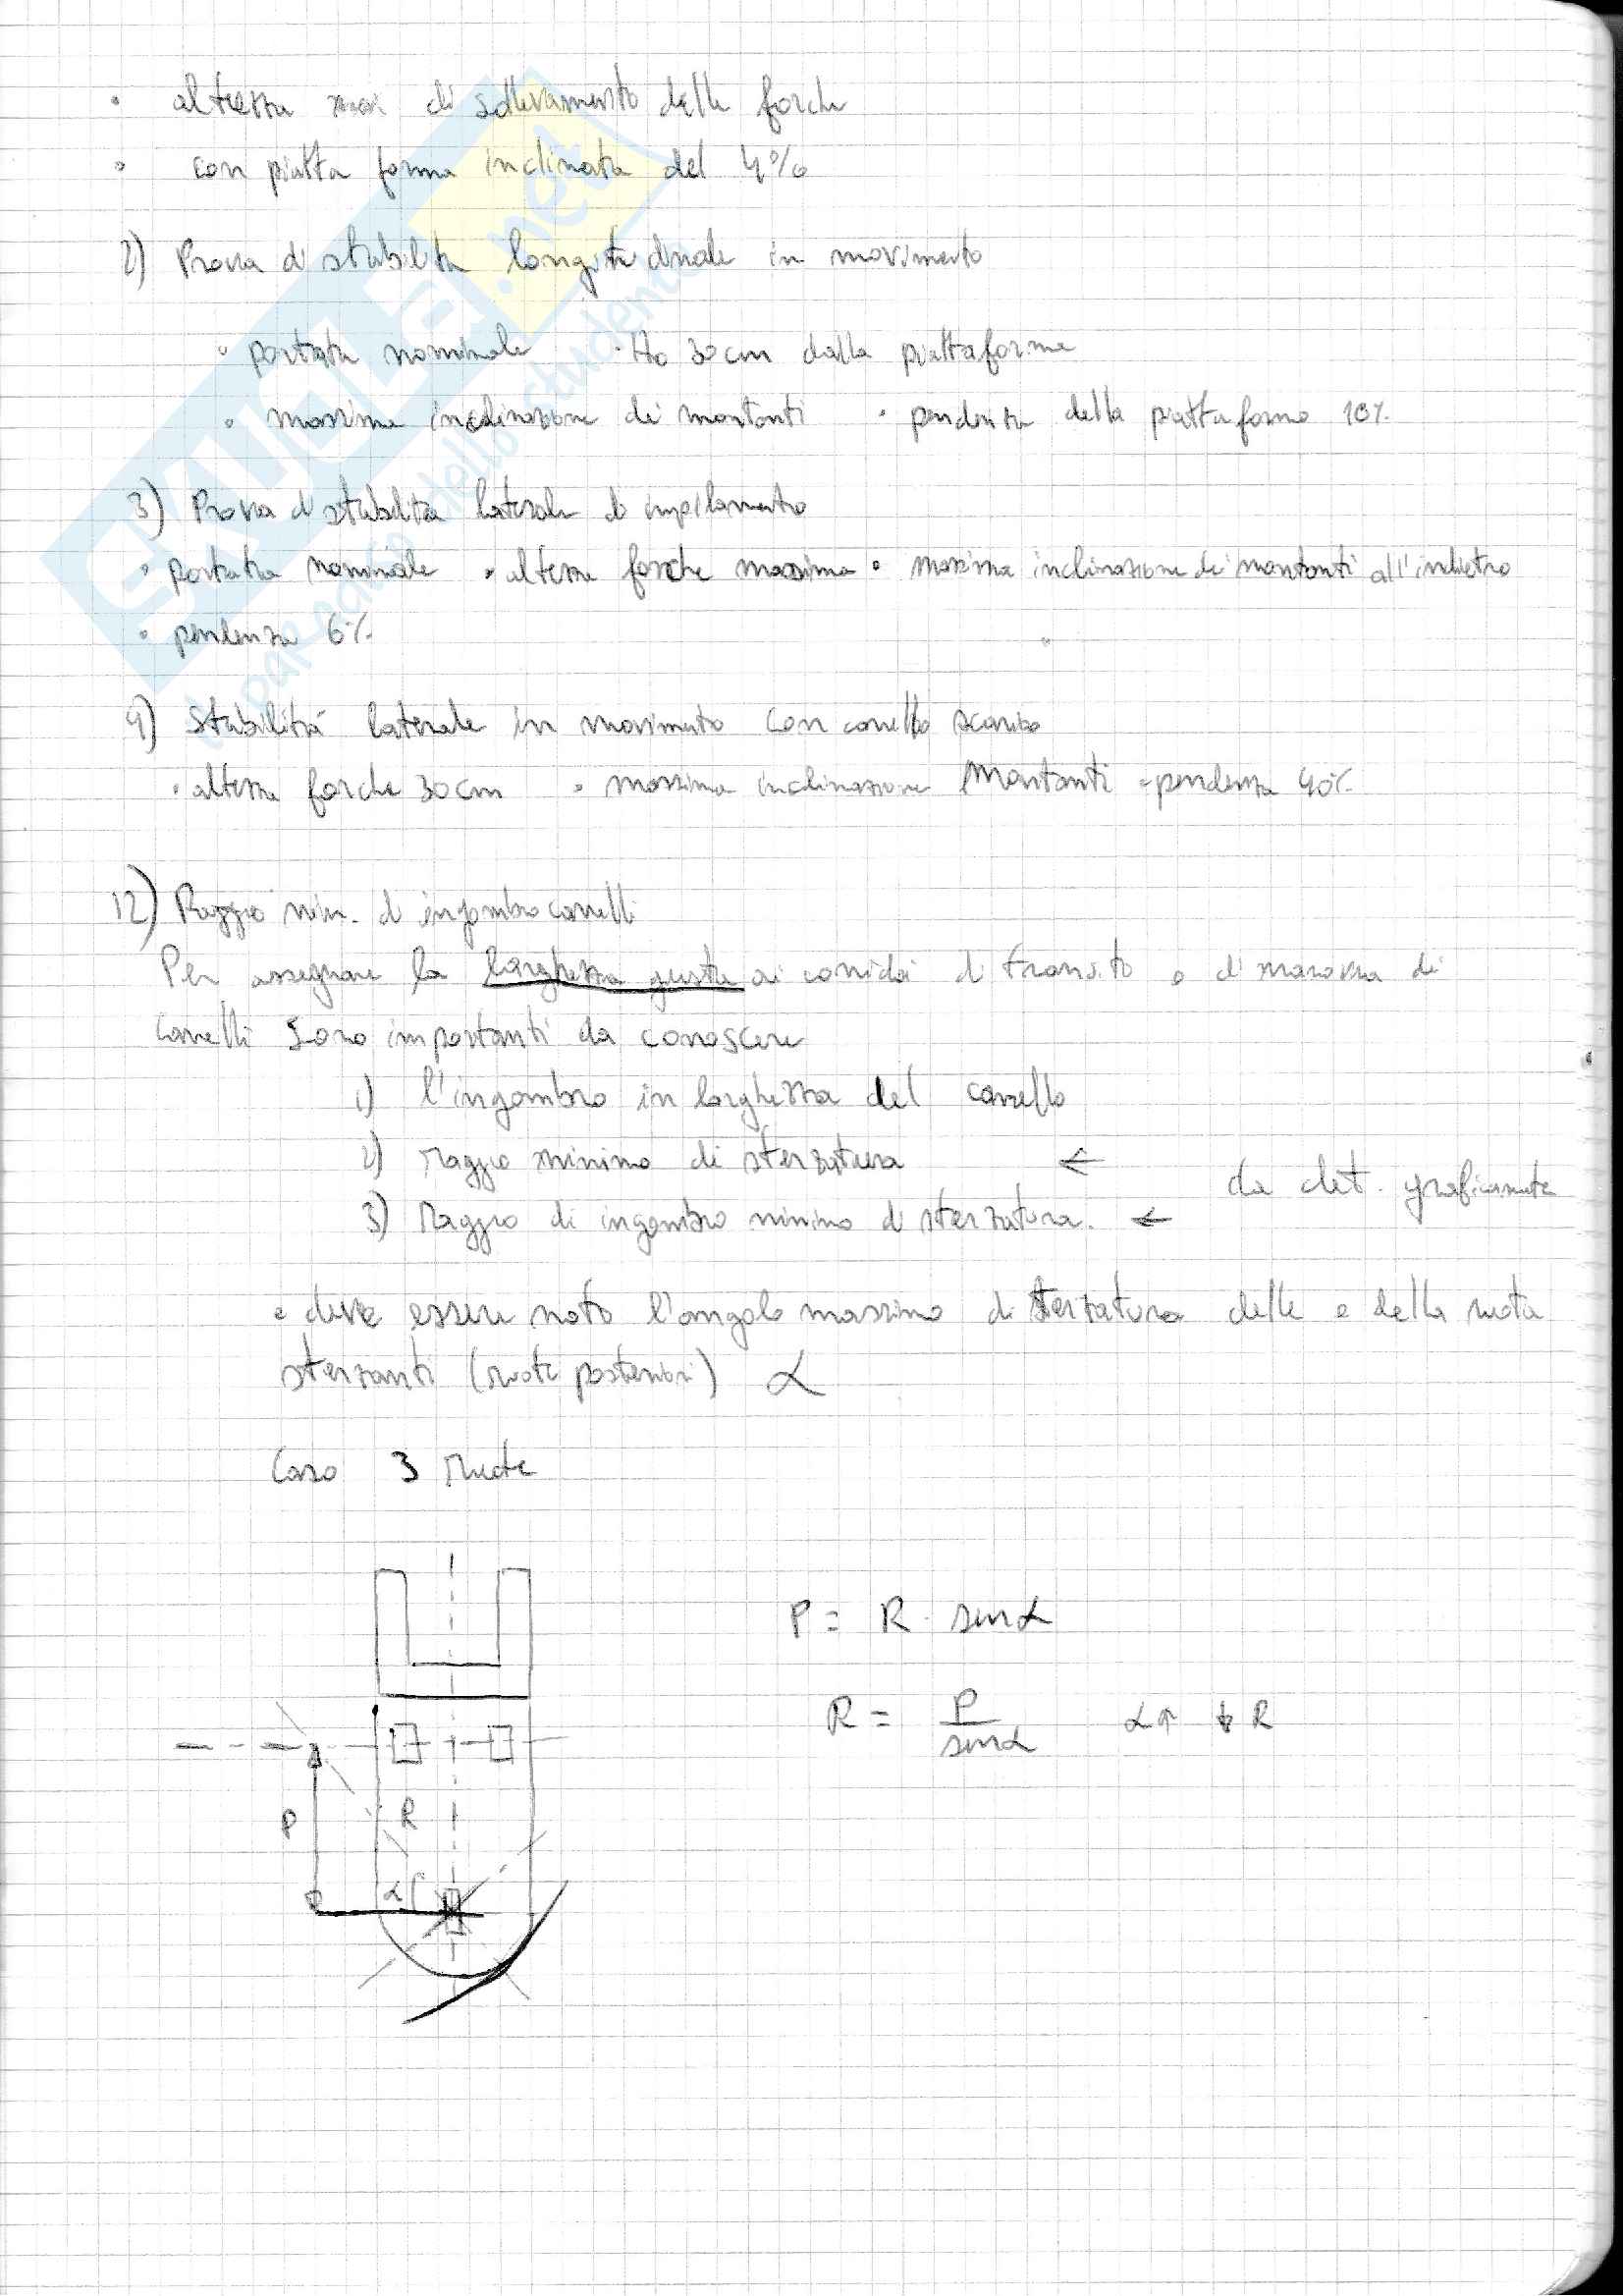 • altezza max di sollevamento delle forche
• con piatta forma inclinata del 4%
2) Prova di stabilità longitudinale in movimento
• portata nominale • Ho 30 cm dalla piattaforma
• massima inclinazione dei montanti • pendenza della piattaforma 18%
3) Prova di stabilità laterale di impilamento
• portata nominale • altezza forche massima • massima inclinazione dei montanti all'indietro
• pendenza 6%
4) Stabilità laterale in movimento con carrello scarico
• altezza forche 30 cm • massima inclinazione Montanti • pendenza 40%
12) Raggio min. di ingombro carrelli
Per assegnare la larghezza giusta ai corridoi di transito o di manovra di
carrelli sono importanti da conoscere
1) l'ingombro in larghezza del carrello
2) raggio minimo di sterzatura ←
da det. graficamente
3) Raggio di ingombro minimo di sterzatura. ←
• deve essere noto l'angolo massimo di sterzatura delle o della ruota
sterzanti (ruote posteriori) α
Caso 3 ruote
P = R · sinα
R = P / sinα α↑ ↓R
P
R
α
EXULA.net